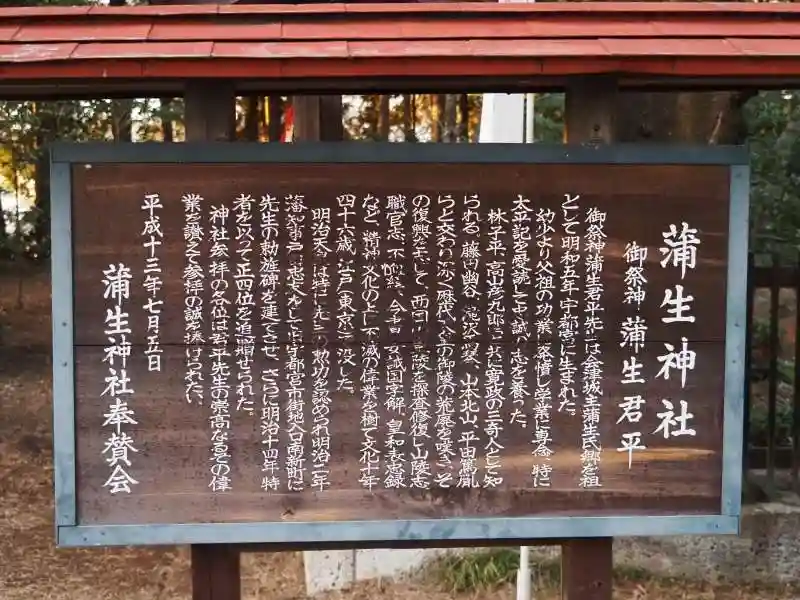 蒲生神社
御祭神 蒲生君平
御祭神蒲生君平先生は会津城主蒲生氏郷を祖
として明和五年、宇都宮に生まれた。
幼少より父祖の功業に発憤し学業に専念、特に
太平記を愛読して忠誠の志を養った。
林子平、高山彦九郎と共に寛政の三奇人として知
られる、藤田幽谷、滝沢馬琴、山本北山、平田篤胤
らと交わり深く歴代天皇の御陵の荒廃を嘆き、そ
の復興を志して、両回山陵を探査修復し山陵志
職官志、不恤緯、今書、女誡国字解、皇和表忠録
など、精神文化の上に不滅の偉業を樹て文化十年
四十六歳、江戸(東京)に没した。
明治天皇は特に先生の勅功を認められ明治二年
藩知事戸田忠友をして宇都宮市街地入口南新町に
先生の勅旌碑を建てさせ、さらに明治十四年特
旨を以って正四位を追贈せられた。
神社参拝の各位は君平先生の崇高な志とその偉
業を讃えて参拝の誠を捧げられたい。
平成十三年七月五日
蒲生神社奉賛会